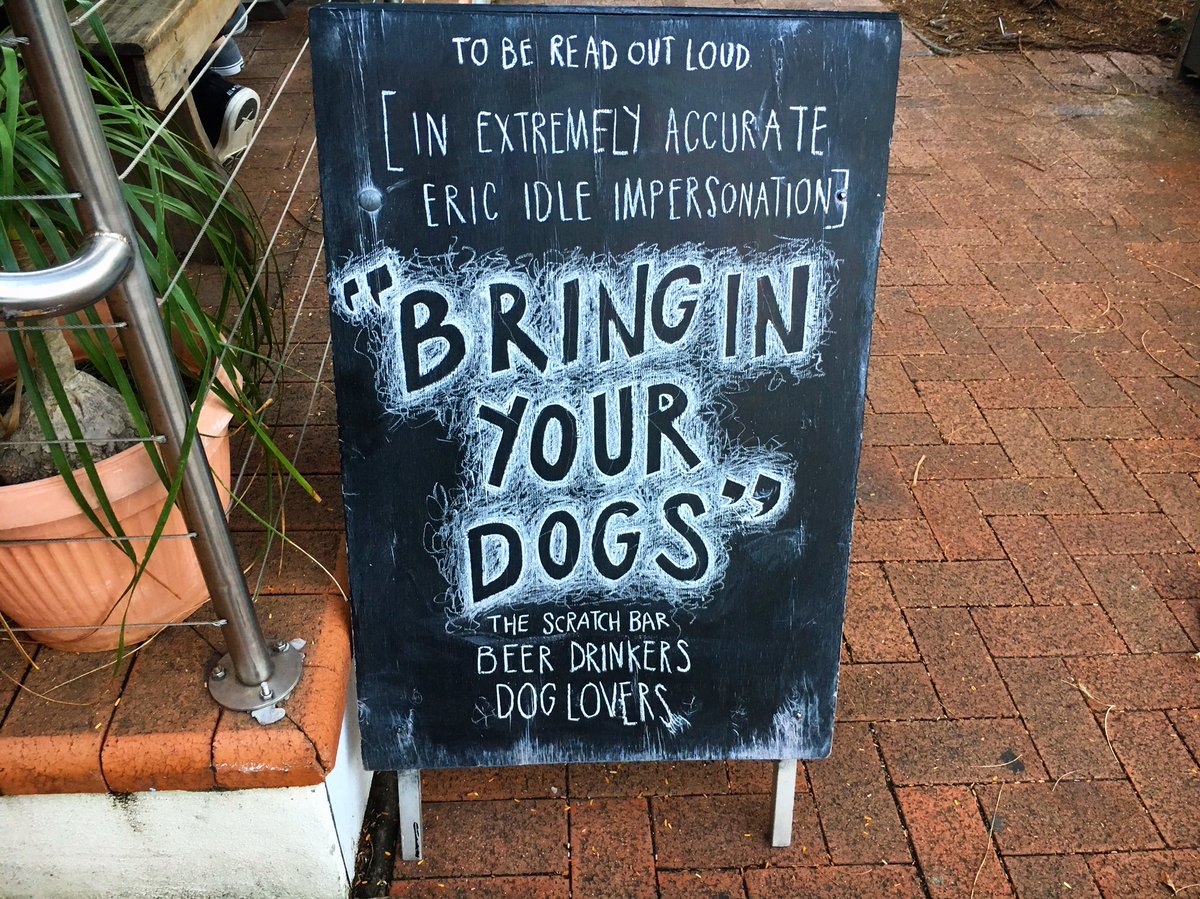 TO BE READ OUT LOUD
[IN EXTREMELY ACCURATE
ERIC IDLE IMPERSONATION]
"BRING IN
YOUR
DOGS"
THE SCRATCH BAR
BEER DRINKERS
DOG LOVERS